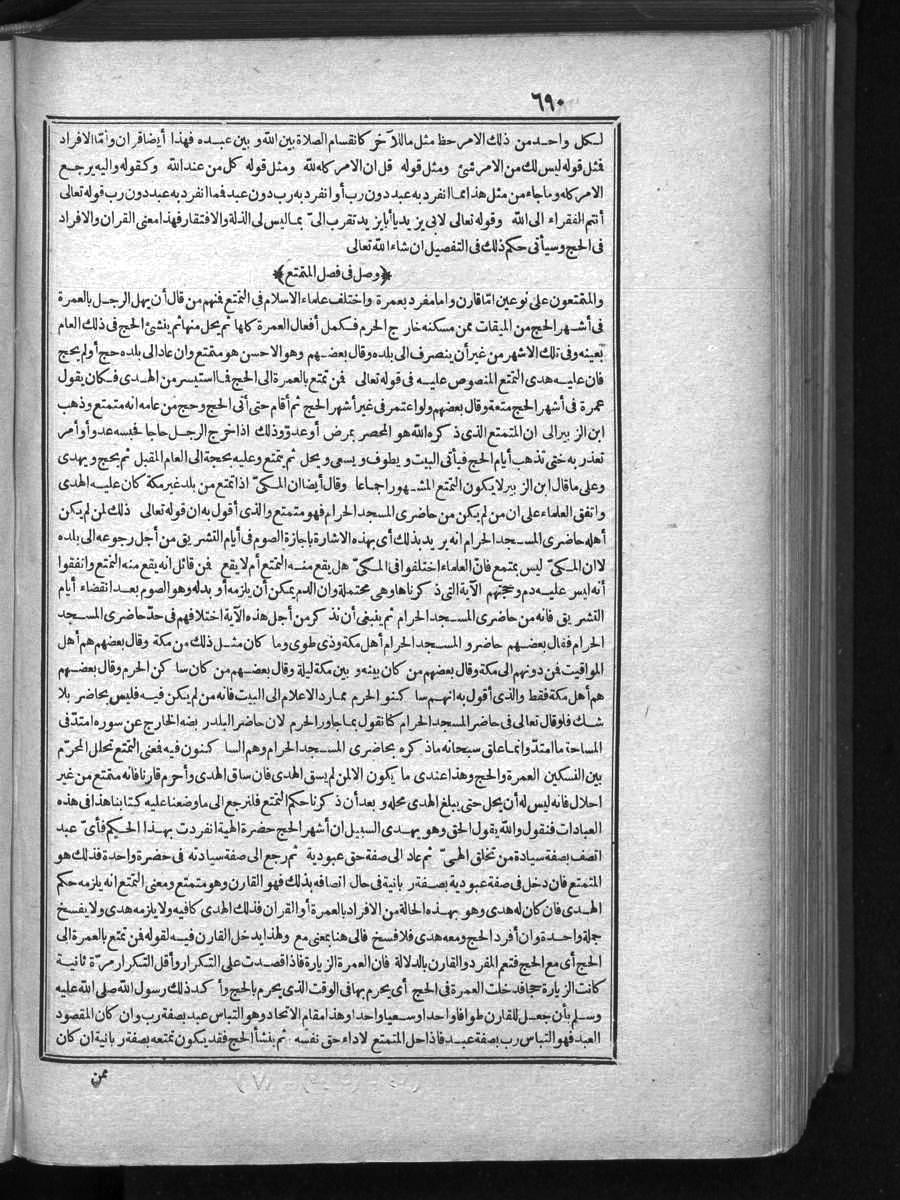 ٦٩٠
لكل واحد من ذلك الامر حظ مثل ما للآخر كانقسام الصلاة بين الله وبين عبده فهذا أيضا قران وأما الافراد
فمثل قوله ليس لك من الامر شئ ومثل قوله قل ان الامر كله لله ومثل قوله كل من عند الله وكقوله واليه يرجع
الامر كله وما جاء من مثل هذا مما انفرد به عبد دون رب أو انفرد به رب دون عبد فما انفرد به عبد دون رب قوله تعالى
أنتم الفقراء الى الله وقوله تعالى لابى يزيد يا أبا يزيد تقرب الىّ بما ليس لى الذلة والافتقار فهذا معنى القران والافراد
فى الحج وسيأتى حكم ذلك فى التفصيل ان شاء الله تعالى
﴿وصل فى فصل المتمتع﴾
والمتمتعون على نوعين امّا قارن واما مفرد بعمرة واختلف علماء الاسلام فى التمتع فمنهم من قال أن يهل الرجل بالعمرة
فى أشهر الحج من الميقات ممن مسكنه خارج الحرم فكمل أفعال العمرة كلها ثم يحل منها ثم ينشئ الحج فى ذلك العام
بعينه وفى تلك الاشهر من غير أن ينصرف الى بلده وقال بعضهم وهو الاحسن هو متمتع وان عاد الى بلده حج أولم يحج
فان عليه هدى التمتع المنصوص عليه فى قوله تعالى فمن تمتع بالعمرة الى الحج فما استيسر من الهدى فكان يقول
عمرة فى أشهر الحج متعة وقال بعضهم ولو اعتمر فى غير أشهر الحج ثم أقام حتى أتى الحج وحج من عامه انه متمتع وذهب
ابن الزبير الى ان المتمتع الذى ذكره الله هو المحصر بمرض أو عدوّ وذلك اذا خرج الرجل حاجا فحبسه عدو أو أمر
تعذر به حتى تذهب أيام الحج فيأتى البيت ويطوف ويسعى ويحل ثم يتمتع وعليه بحجة الى العام المقبل ثم يحج ويهدى
وعلى ما قال ابن الزبير لا يكون التمتع المشهور اجماعا وقال أيضا ان المكىّ اذا تمتع من بلد غير مكة كان عليه الهدى
واتفق العلماء على ان من لم يكن من حاضرى المسجد الحرام فهو متمتع والذى أقول به ان قوله تعالى ذلك لمن لم يكن
أهله حاضرى المسجد الحرام انه يريد بذلك أى بهذه الاشارة باجازة الصوم فى أيام التشريق من أجل رجوعه الى بلده
لا ان المكىّ ليس بمتمتع فانّ العلماء اختلفوا فى المكىّ هل يقع منه التمتع أم لا يقع فمن قائل انه يقع منه التمتع واتفقوا
أنه ليس عليه دم وحجتهم الآية التى ذكرناها وهى محتملة وان الدم يمكن أن يلزمه أو بدله وهو الصوم بعد انقضاء أيام
التشريق فانه من حاضرى المسجد الحرام ثم ينبغى أن نذكر من أجل هذه الآية اختلافهم فى حدّ حاضرى المسجد
الحرام فقال بعضهم حاضرو المسجد الحرام أهل مكة وذى طوى وما كان مثل ذلك من مكة وقال بعضهم هم أهل
المواقيت فمن دونهم الى مكة وقال بعضهم من كان بينه وبين مكة ليلة وقال بعضهم من كان ساكن الحرم وقال بعضهم
هم أهل مكة فقط والذى أقول به انهم ساكنو الحرم مما رد الاعلام الى البيت فانه من لم يكن فيه فليس بحاضر بلا
شك فلو قال تعالى فى حاضر المسجد الحرام كنا نقول بما جاور الحرم لان حاضر البلد ربضه الخارج عن سوره امتدّ فى
المساحة ما امتدّ وانما علق سبحانه ما ذكره بحاضرى المسجد الحرام وهم الساكنون فيه فمعنى التمتع تحلل المحرم
بين النسكين العمرة والحج وهذا عندى ما يكون الا لمن لم يسق الهدى فان ساق الهدى وأحرم قارنا فانه متمتع من غير
احلال فانه ليس له أن يحل حتى يبلغ الهدى محله وبعد أن ذكرنا حكم التمتع فلنرجع الى ما وضعنا عليه كتابنا هذا فى هذه
العبادات فنقول والله يقول الحق وهو يهدى السبيل ان أشهر الحج حضرة الهية انفردت بهذا الحكم فأىّ عبد
اتصف بصفة سيادة من تخلق الهىّ ثم عاد الى صفة حق عبودية ثم رجع الى صفة سيادته فى حضرة واحدة فذلك هو
المتمتع فان دخل فى صفة عبودية بصفة ربانية فى حال اتصافه بذلك فهو القارن وهو متمتع ومعنى التمتع انه يلزمه حكم
الهدى فان كان له هدى وهو بهذه الحالة من الافراد بالعمرة أو القران فذلك الهدى كافيه ولا يلزمه هدى ولا يفسخ
جملة واحدة وان أفرد الحج ومعه هدى فلا فسخ فالى هنا بمعنى مع ولهذا يدخل القارن فيه لقوله فمن تمتع بالعمرة الى
الحج أى مع الحج فتعم المفرد والقارن بالدلالة فان العمرة الزيارة فاذا قصدت على التكرار وأقل التكرار مرّة ثانية
كانت الزيارة حجا فدخلت العمرة فى الحج أى يحرم بها فى الوقت الذى يحرم بالحج وأكد ذلك رسول الله صلى الله عليه
وسلم بأن جعل للقارن طوافا واحدا وسعيا واحدا وهذا مقام الاتحاد وهو التباس عبد بصفة رب وان كان المقصود
العبد فهو التباس رب بصفة عبد فاذا حل المتمتع لاداء حق نفسه ثم ينشأ الحج فقد يكون تمتعه بصفة ربانية ان كان
ممن